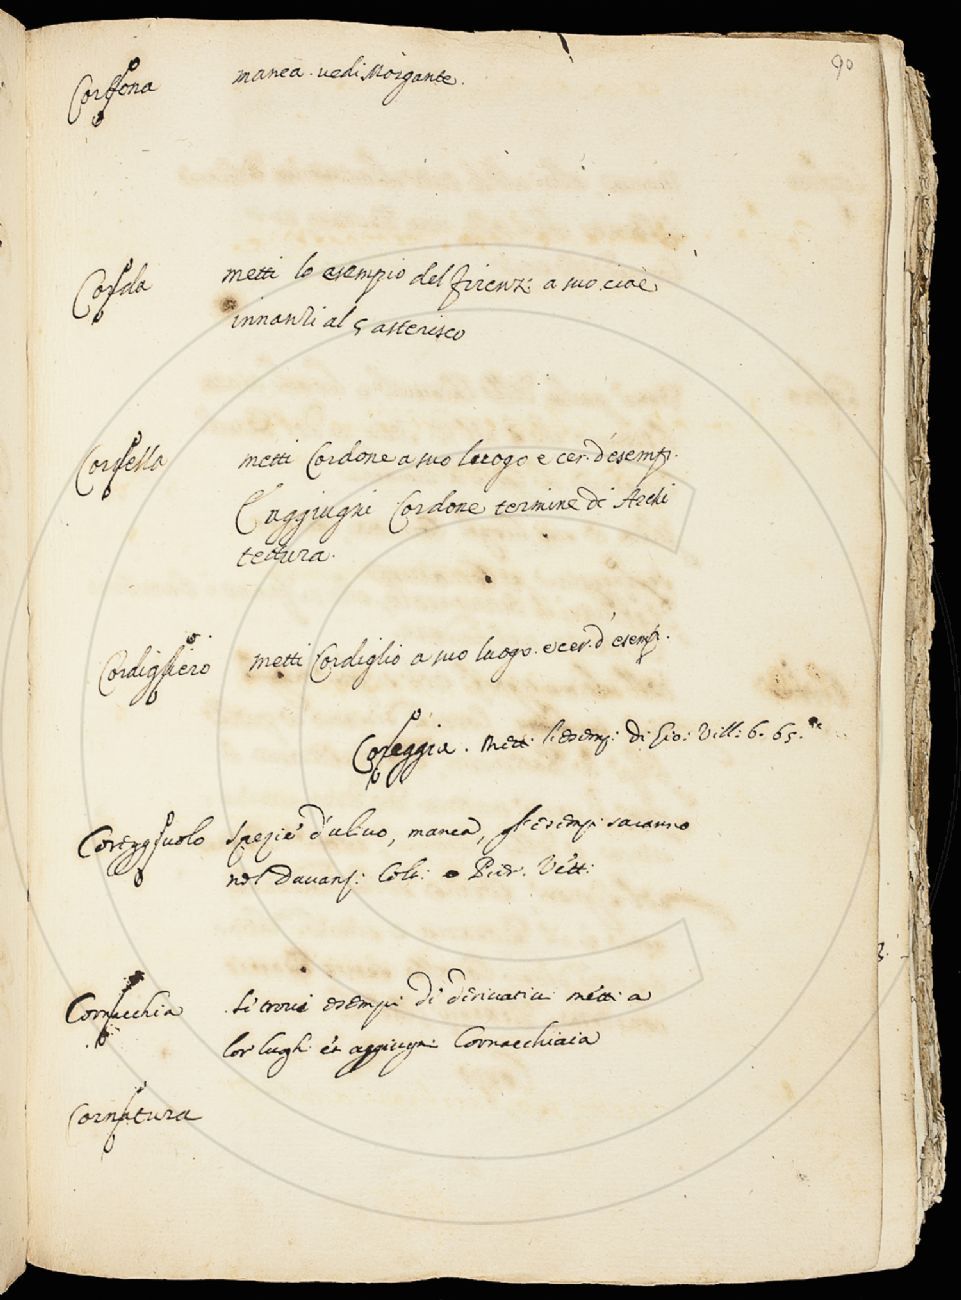 90
Corsona manca. vedi Morgante.
Corda metti lo esempio del firenz: a suo, cioè
innanzi al § asterisco
Cordella metti Cordone a suo luogo e cer. d'esempi.
E aggiugni Cordone termine di Archi
tettura.
Cordigliero metti Cordiglio a suo luogo. e cer. d'esemp.
Coreggia. Metti l'esemp: di Gio: Vill: 6. 65.
Coreggiuolo spezie d'ulivo, manca, gl'esempi saranno
nel Davanz: Colt: o Pier. Vett:
Cornacchia si trovi esempi di derivativi metti a
lor lughi et aggiugni Cornacchiaia
Cornatura